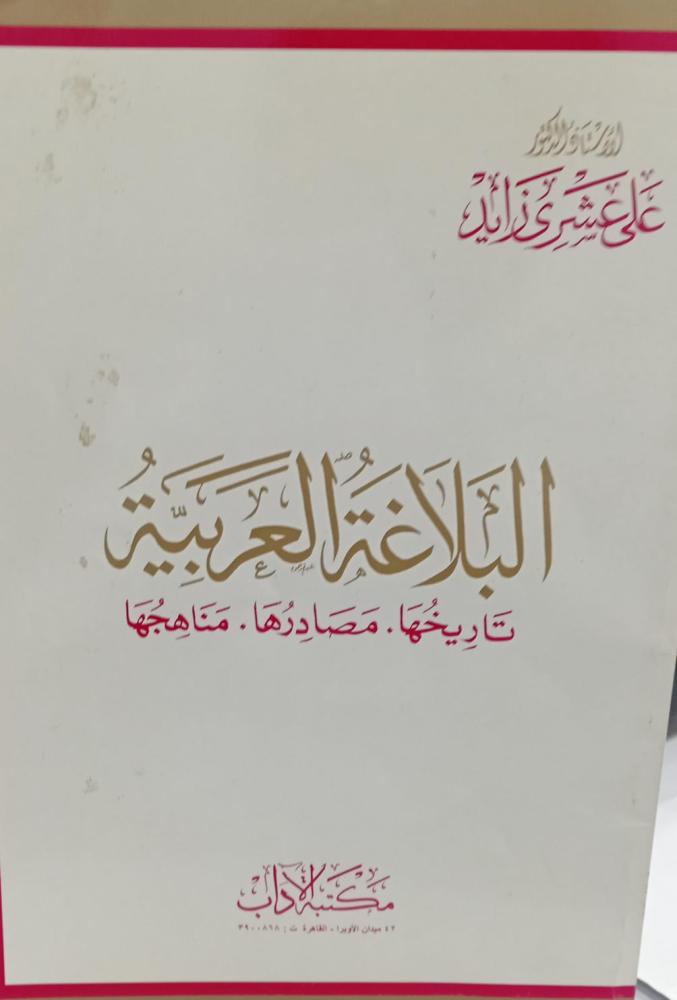 الأستاذ الدكتور
على عشرى زايد
البَلَاغَةُ العَرَبيَّةُ
تَارِيخُهَا. مَصَادِرُهَا. مَنَاهِجُهَا
مكتبة الآداب
٤٢ ميدان الأوبرا - القاهرة ت : ٣٩٠٠٨٦٨